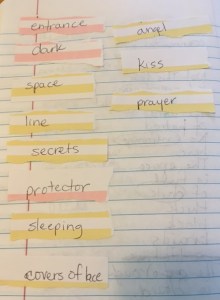 entrance
dark
space
line
secrets
protector
sleeping
covers of lace
angel
kiss
prayer